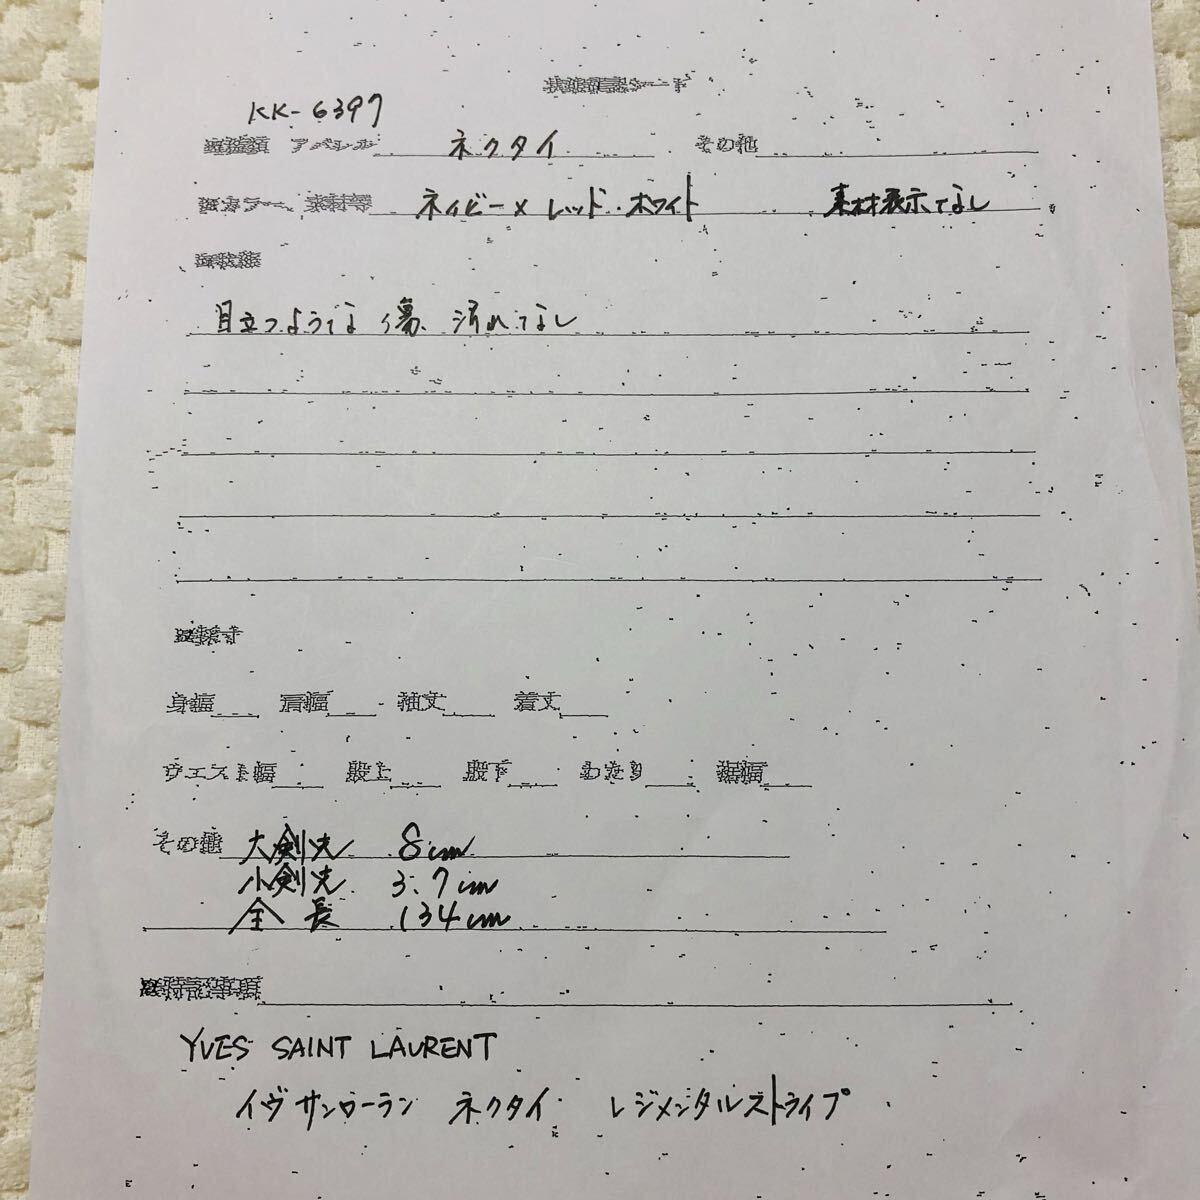 KK-6397
アパレル ネクタイ その他
カラー、素材等 ネイビー×レッド・ホワイト 素材表示なし
目立つようなな傷、汚れなし
身幅 肩幅 袖丈 着丈
ウエスト幅 股上 股下 わたり 裾幅
その他 大剣先 8cm
小剣先 3.7cm
全長 134cm
特記事項
YVES SAINT LAURENT
イヴサンローラン ネクタイ レジメンタルストライプ